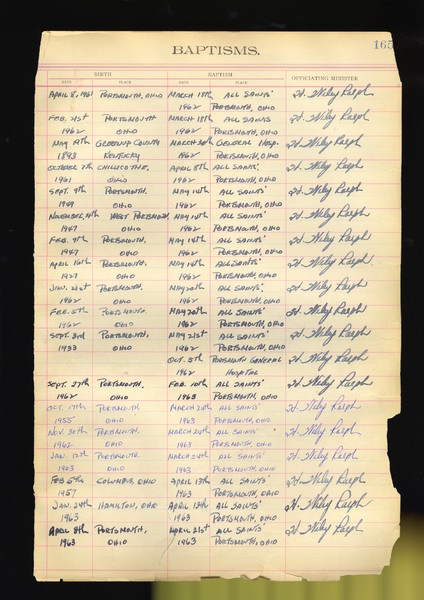 165
BAPTISMS.
BIRTH BAPTISM OFFICIATING MINISTER
DATE PLACE DATE PLACE
APRIL 8, 1961 PORTSMOUTH, OHIO MARCH 18th ALL SAINTS' H. Wiley Ralph
1962 PORTSMOUTH, OHIO
FEB. 21st PORTSMOUTH MARCH 18th ALL SAINTS H. Wiley Ralph
1962 OHIO 1962 PORTSMOUTH, OHIO
MAY 19th COUNTY MARCH 20th GENERAL HOSP. H. Wiley Ralph
1893 KENTUCKY 1962 PORTSMOUTH, OHIO
OCTOBER 7th CHILLICOTHE. APRIL 8th ALL SAINTS' H. Wiley Ralph
1961 OHIO 1962 PORTSMOUTH, OHIO
SEPT. 9th PORTSMOUTH. MAY 14th ALL SAINTS' H. Wiley Ralph
1949 OHIO 1962 PORTSMOUTH, OHIO
NOVEMBER WEST PORTSMOUTH MAY 14th ALL SAINTS' H. Wiley Ralph
1947 OHIO 1962 PORTSMOUTH, OHIO
FEB. 9th PORTSMOUTH, MAY 14th ALL SAINTS' H. Wiley Ralph
1947 OHIO 1962 PORTSMOUTH, OHIO
APRIL PORTSMOUTH. MAY 14th ALL SAINTS' H. Wiley Ralph
1927 OHIO 1962 PORTSMOUTH, OHIO
JAN. 21st PORTSMOUTH. MAY 20th ALL SAINTS' H. Wiley Ralph
1962 OHIO 1962 PORTSMOUTH, OHIO
FEB. 5th PORTSMOUTH MAY 20th ALL SAINTS' H. Wiley Ralph
1962 OHIO 1962 PORTSMOUTH, OHIO
SEPT. 3rd PORTSMOUTH, MAY 21st ALL SAINTS' H. Wiley Ralph
1933 OHIO 1962 PORTSMOUTH, OHIO
OCT. 5th PORTSMOUTH GENERAL H. Wiley Ralph
1962 HOSPITAL
SEPT. 27th PORTSMOUTH, FEB. 10th ALL SAINTS' H. Wiley Ralph
1962 OHIO 1963 PORTSMOUTH, OHIO
OCT. 17th PORTSMOUTH MARCH 24th ALL SAINTS' H. Wiley Ralph
1955 OHIO 1963 PORTSMOUTH, OHIO
NOV. 30th PORTSMOUTH, MARCH 24th ALL SAINTS' H. Wiley Ralph
1962 OHIO 1963 PORTSMOUTH, OHIO
JAN. 12th PORTSMOUTH, MARCH 24th ALL SAINTS' H. Wiley Ralph
1963 OHIO 1963 PORTSMOUTH, OHIO
FEB 5th COLUMBUS, OHIO APRIL 13th ALL SAINTS' H. Wiley Ralph
1957 1963 PORTSMOUTH, OHIO
JAN. 24th HAMILTON, OHIO APRIL 13th ALL SAINTS' H. Wiley Ralph
1963 1963 PORTSMOUTH, OHIO
APRIL 8th PORTSMOUTH, APRIL 21st ALL SAINTS' H. Wiley Ralph
1963 OHIO 1963 PORTSMOUTH, OHIO